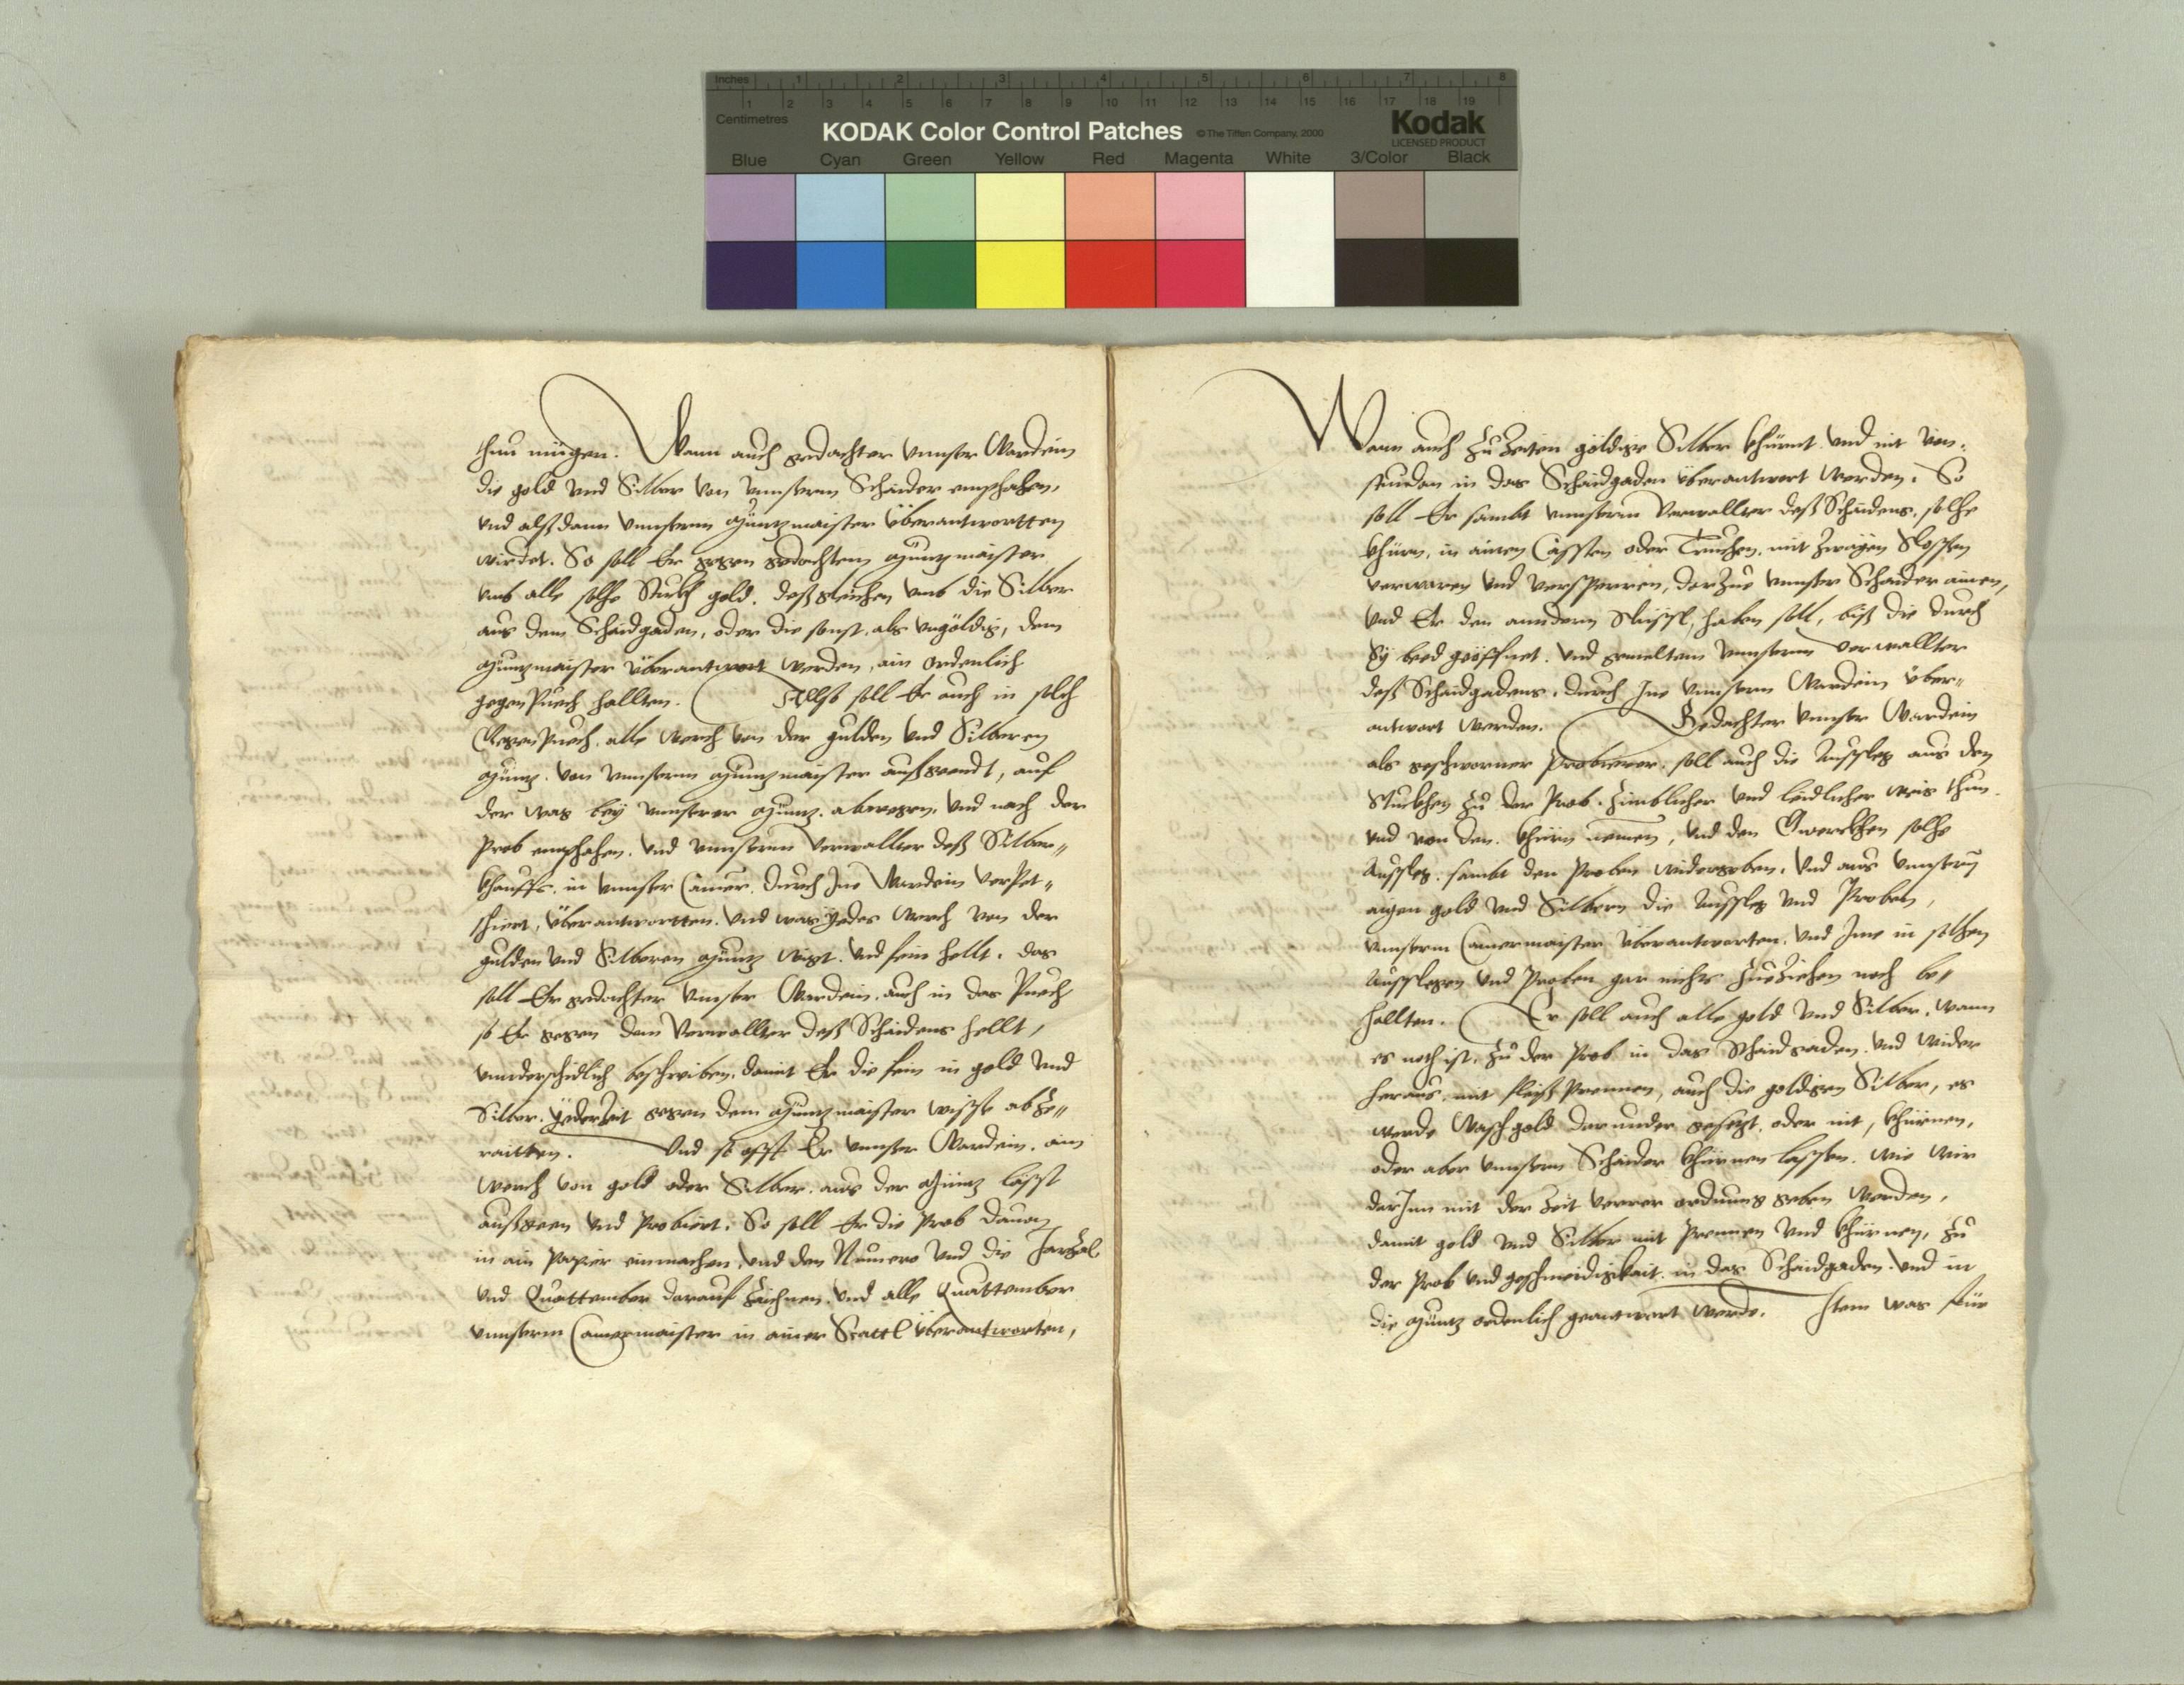 Inches 1 2 3 4 5 6 7 8
1 2 3 4 5 6 7 8 9 10 11 12 13 14 15 16 17 18 19
Centimetres
KODAK Color Control Patches © The Tiffen Company, 2000 Kodak
LICENSED PRODUCT
Blue Cyan Green Yellow Red Magenta White 3/Color Black
thun mügen. Wann auch gedachter vnnser Wardein
die gold vnd Silber von vnnserm Schaider emphahen,
vnd alßdann vnnserm Müntzmaister überantwortten
wirdet. So soll Er gegen gedachtem Müntzmaister
vmb alle solhe Stukh gold, deßgleichen vmb die Silber
aus dem Schaidgaden, oder die sonst, als vngöldig, dem
Müntzmaister überantwort werden, ain ordenlich
gegenPuech hallten. Allso soll Er auch in solch
GegenPuech, alle werch von der gulden vnd Silberen
Müntz, von vnnserm Müntzmaister außgeendt, auf
der wag bey vnnserer Müntz, abwegen, vnd nach der
Prob emphahen, vnd vnnserm Verwallter deß Silber=
khauffs, in vnnser Camer, durch Ine Wardein verPet=
schiert, überantwortten. Vnd was yedes werch von der
gulden vnd Silberen Müntz wigt, vnd fein hellt, das
soll Er gedachter vnnser Wardein, auch in das Puech
so Er gegen dem Verwallter deß Schaidens hellt,
vnnderschidlich beschreiben, damit Er die fein in gold vnd
Silber, yederzeit gegen dem Müntzmaister wisse abze=
raitten. Vnd so offt Er vnnser Wardein, ain
werch von gold oder Silber, aus der Müntz lasst
außgeen vnd Probiert, So soll Er die Prob dauon
in ain Papier einmachen, vnd den Numero vnd die Jarzal
vnd Quattember darauf zaichnen, vnd alle Quattember
vnnserm Camermaister in ainer Scattl überantworten,
Wann auch zu Zeiten göldige Silber khürnt vnd nit von
stundan in das Schaidgaden überantwort werden. So
soll Er sambt vnnserm Verwallter deß Schaidens, solhe
khürn, in ainen Cassten oder Truhen, mit zwayen Slossen
verwaren vnd versperren, darzue vnnser Schaider ainen,
vnd Er den anndern Slüssl, haben soll, biß die durch
Sy beed geöffnet, vnd gemeltem vnnserm Verwallter
deß Schaidgadens, durch Ine vnnsern Wardein über=
antwort werden. Gedachter vnnser Wardein
als geschworner Probierer, soll auch die Aufsleg aus den
Stuckhen zu der Prob, zimblicher vnd leidlicher weis thun,
vnd von den khürn nemen, vnd den Gwerckhen solhe
Aufsleg, sambt den Proben widergeben, vnd aus vnnsern
aigen gold vnd Silbern die Aufsleg vnd Proben,
vnnserm Camermaister überantworten, vnd Ime in solhen
Aufslegen vnd Proben gar nichts zueziehen noch be=
hallten. Er soll auch alle gold vnd Silber, wann
es noth ist, zu der Prob in das Schaidgaden, vnd wider
heraus, mit fleiß Prennen, auch die goldigen Silber, es
werde Waschgold darunder gesetzt, oder nit, khürnen,
oder aber vnnsern Schaider khürnen lassen, wie wir
darInn mit der zeit verrer ordnung geben werden,
damit gold vnd Silber mit Prennen vnd khürnen, zu
der Prob vnd geschmeidigkait, in das Schaidgaden, vnd in
die Müntz ordenlich geantwort werde. Item was für